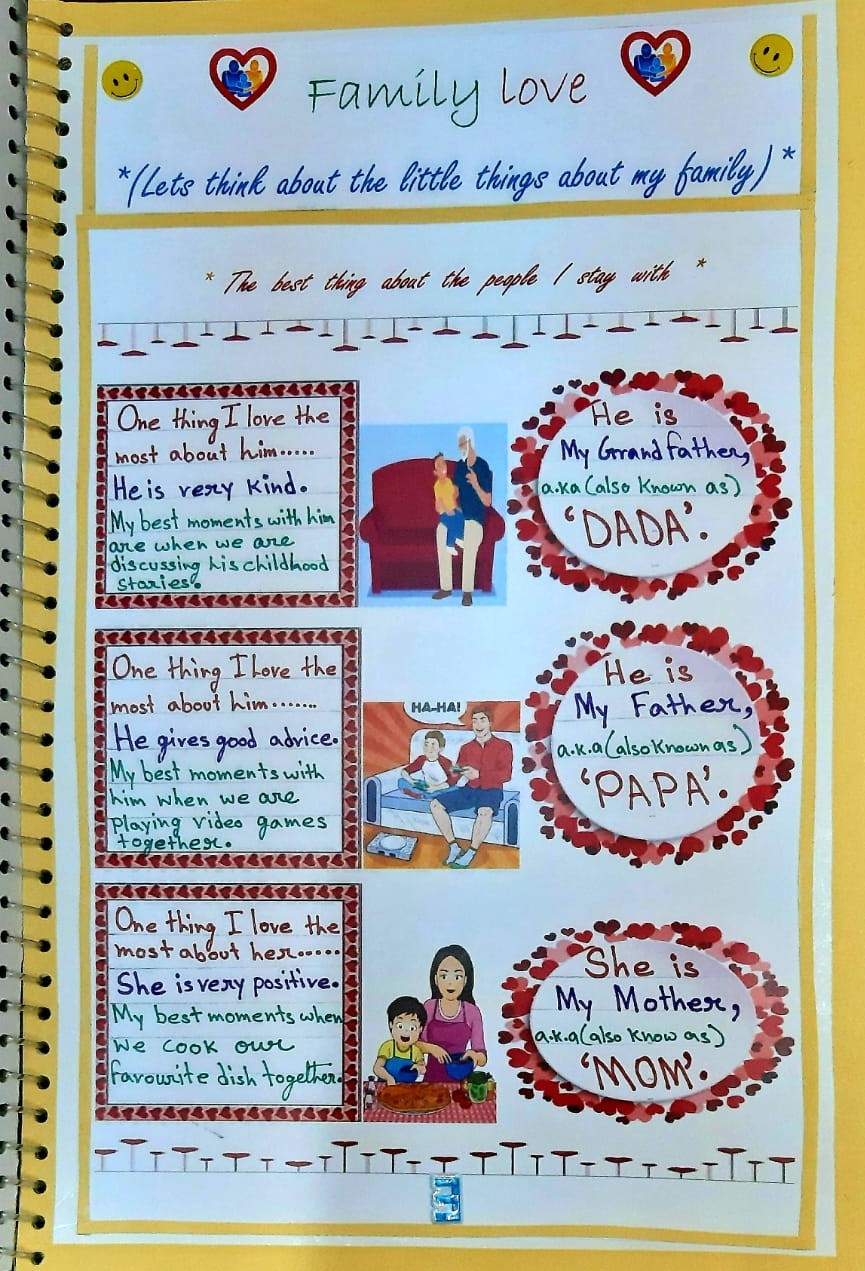 Family love
*(Lets think about the little things about my family)*
* The best thing about the people I stay with *
One thing I love the
most about him.....
He is very kind.
My best moments with him
are when we are
discussing his childhood
stories.
He is
My Grandfather,
a.ka (also known as)
'DADA'.
One thing I love the
most about him.......
He gives good advice.
My best moments with
him when we are
playing video games
together.
HA-HA!
He is
My Father,
a.k.a (also known as)
'PAPA'.
One thing I love the
most about her.....
She is very positive.
My best moments when
we cook our
favourite dish together.
She is
My Mother,
a.k.a (also know as)
'MOM'.